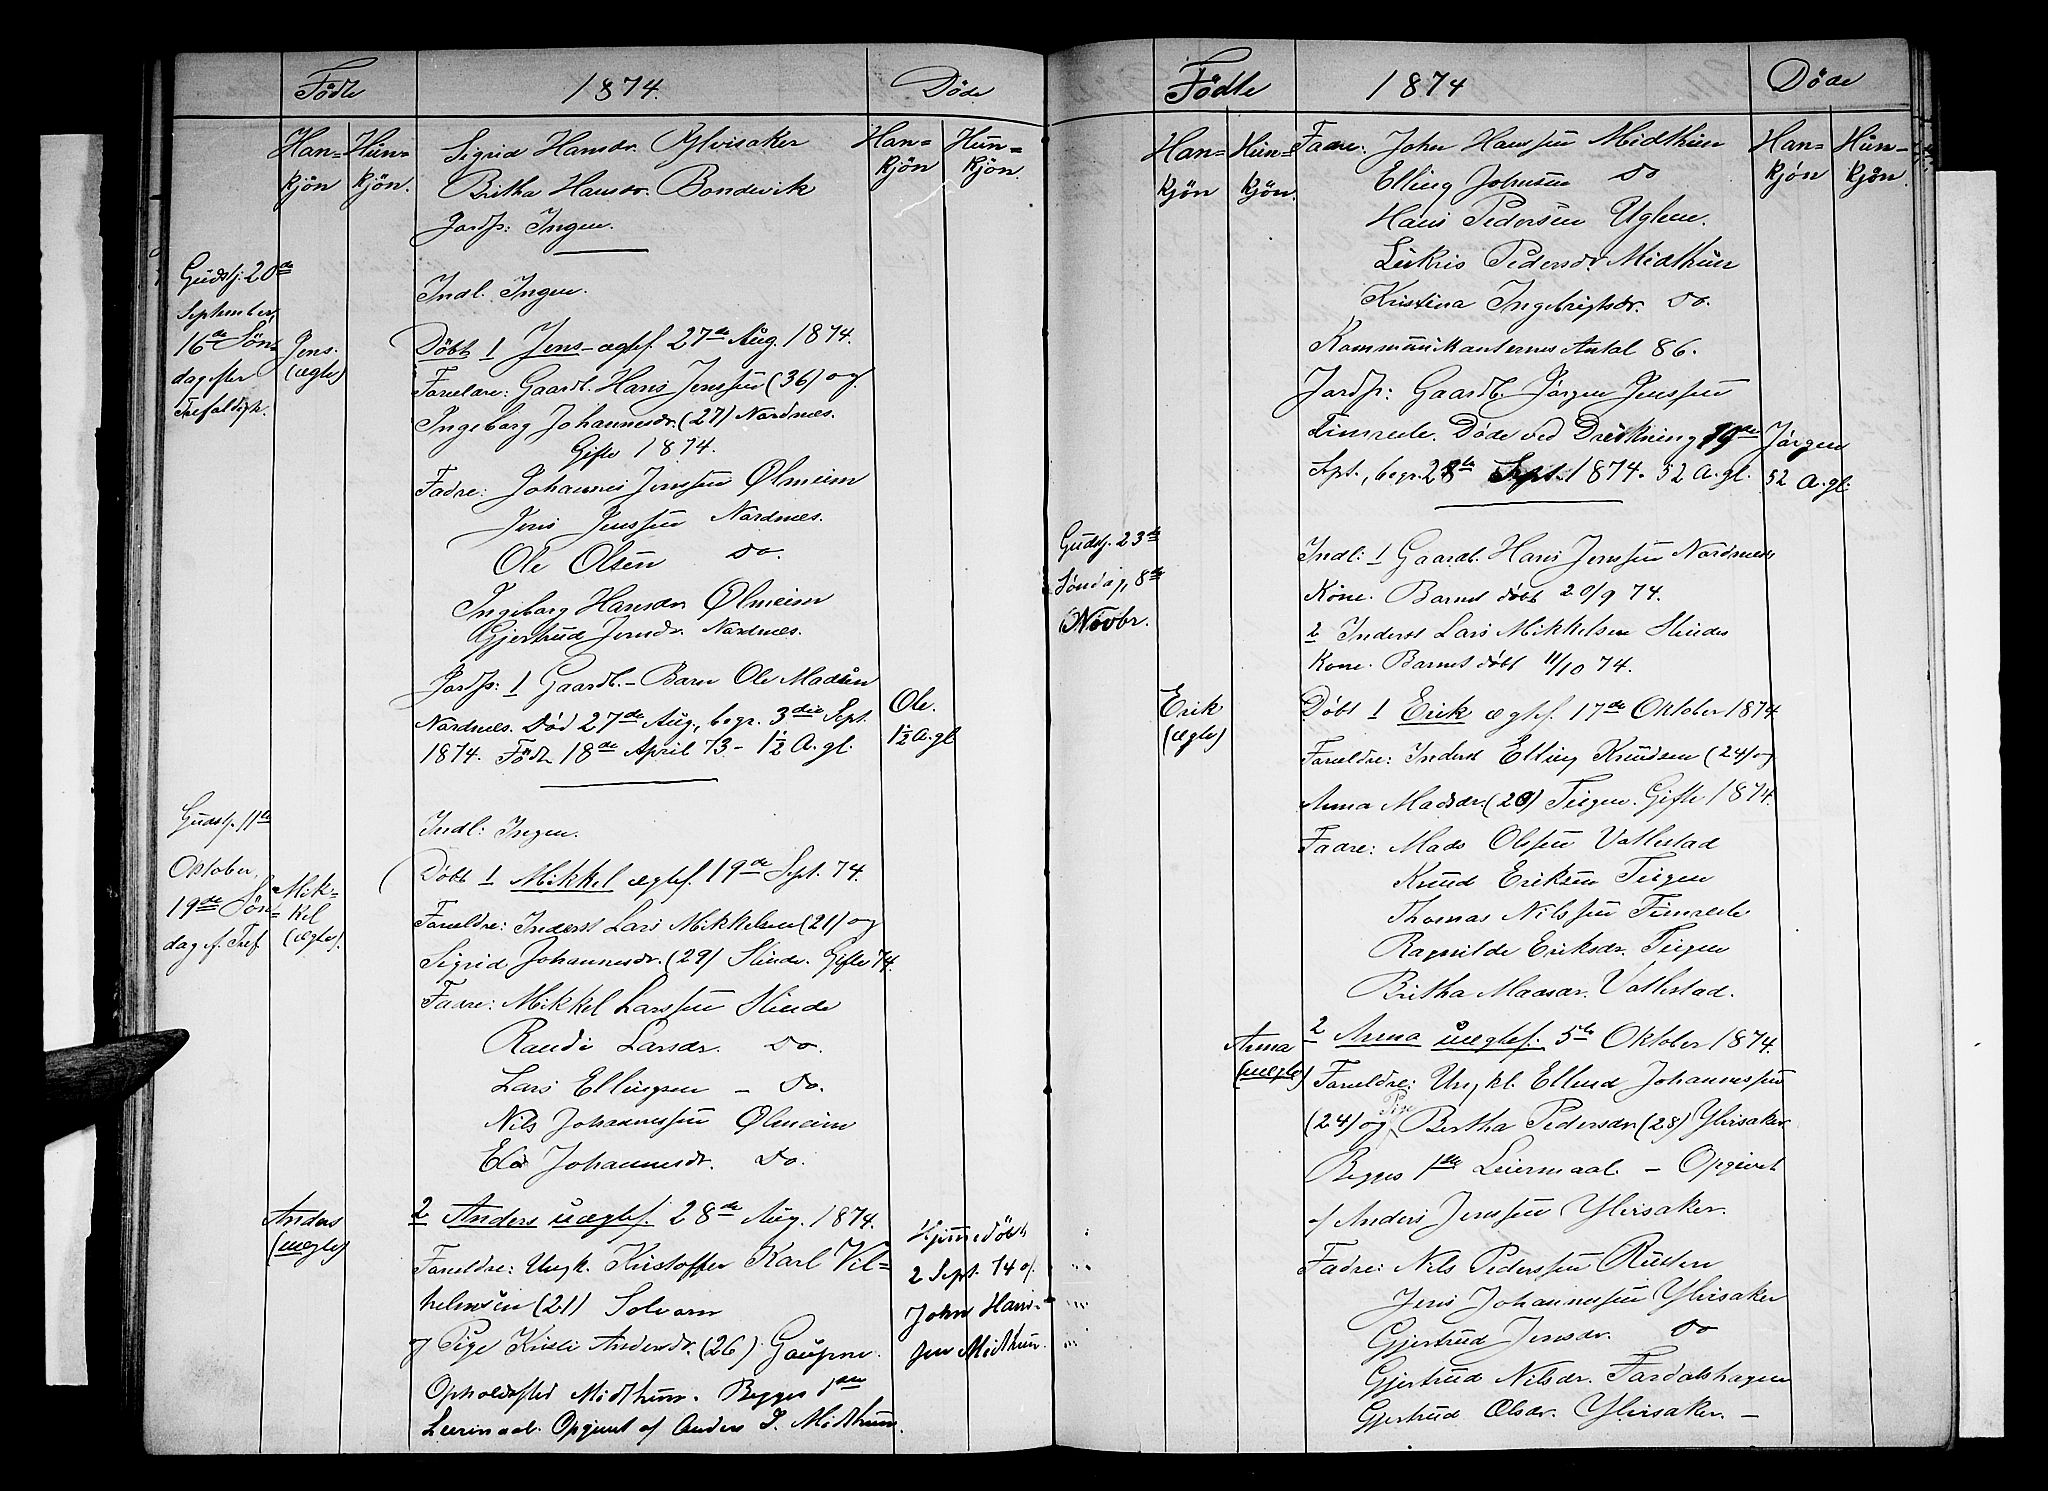 Födte
1874.
Döde
Han= Hün= Sigrid Hansdr. Ylvisaker Han= Hün=
kjön kjön. Britha Hansdr. Bondevik kjön kjön.
Jordf: Ingen.
Gudstj. 20de
September,
16de Sön-
dag efter
Trefoldigh.
Indl. Ingen.
Jens.
(ægte)
Döbt 1 Jens – ægtef. 27de Aug. 1874.
Forældre: Gaardb. Hans Jenssen (36) og
Ingeborg Johannesdr. (27) Nordnes.
Gifte 1874.
Fadre: Johannes Jenssen Ølmeim
Jens Jenssen Nordnes.
Ole Olsen do.
Ingeborg Hansdr Ølmeim
Gjertrud Jensdr. Nordnes.
Jordf: 1 Gaardb. – Barn Ole Madsen
Nordnes. Död 27de Aug., begr. 3die Sept.
1874. Född 18de April 73 – 1½ A. gl.
Ole.
1½ A. gl
Gudstj. 11te
Oktober,
19de Sön-
dag e. Tref.
Indl: Ingen.
Mik=
kel
(ægte).
Döbt 1 Mikkel ægtef. 19de Sept. 74.
Forældre: Inderst Lars Mikkelsen (21) og
Sigrid Johannesdr. (29) Slinde. Gifte 74.
Fadre: Mikkel Larssen Slinde
Randi Larsdr. do.
Lars Ellingsen – do.
Nils Johannessen Ølmeim
Johannesdr. do.
Anders
(uægte)
2 Anders uægtef. 28de Aug. 1874.
Forældre: Ungk. Kristoffer Karl Vil=
helmsen (21) Solvorn
og Pige Kristi Andersdr. (26) Gaupne.
Opholdssted Midthun. Begges 1ste
Leiermaal. Opgivet af Anders J. Midthun.
Hjemmedöbt
2 Sept. 74 af
John Hans-
sen Midthun.
Födte
1874
Döde
Han= Hün= Han= Hün=
kjön kjön. kjón kjön.
Fadre: John Hanssen Midthun
Elling Johnsen do
Hans Pedersen Uglum.
Lukris Pedersdr. Midthun
Kristina Ingebrigtsdr. do.
Kommunikanternes Antal 86.
Jordf: Gaardb. Jörgen Jenssen
Fimreite. Döde ved Drukning 19de
Spt., begr. 28de Sept. 1874. 52 A. gl.
Jörgen
52 A. gl.
Gudstj. 23de
Söndag, 8de
Novbr.
Indl: 1 Gaardb. Hans Jenssen Nordnes
Kone. Barnet döbt 20/9 74.
2 Inderst Lars Mikkelsen Slindes
Kone. Barnet döbt 11/10 74.
Erik
(ægte)
Döbt 1 Erik ægtef. 17de Oktober 1874
Forældre: Inderst Elling Knudsen (24) og
Anna Madsdr. (20) Teigen. Gifte 1874.
Fadre: Mads Olssen Vallestad
Knud Eriksen Teigen
Thomas Nilssen Fimreite
Ragnilde Eriksdr. Teigen
Britha Madsdr. Vallestad.
Anna
(uægte)
2 Anna uægtef. 5te Oktober 1874.
Forældre: Ungkl. Ellend Johannessen
(24) og Pige Bertha Pedersdr (28) Ylvisaker
Begges 1ste Leiermaal – Opgivet
af Anders Jenssen Ylvisaker.
Fadre: Nils Pederssen Rutlin
Jens Johannessen Ylvisaker
Gjertrud Jensdr. do
Gjertrud Nilsdr. Fardalshagen
Gjertrud Olsdr. Ylvisaker. –